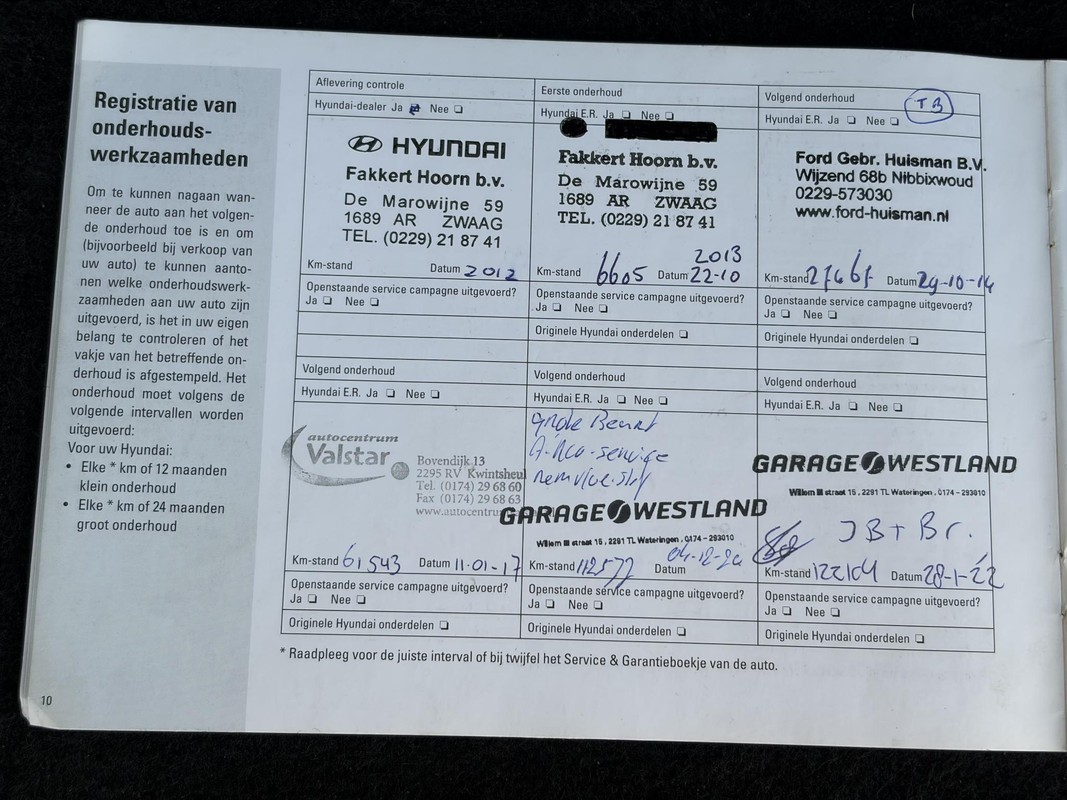 Registratie van
onderhouds-
werkzaamheden
Om te kunnen nagaan wan-
neer de auto aan het volgen-
de onderhoud toe is en om
(bijvoorbeeld bij verkoop van
uw auto) te kunnen aanto-
nen welke onderhoudswerk-
zaamheden aan uw auto zijn
uitgevoerd, is het in uw eigen
belang te controleren of het
vakje van het betreffende on-
derhoud is afgestempeld. Het
onderhoud moet volgens de
volgende intervallen worden
uitgevoerd:
Voor uw Hyundai:
• Elke * km of 12 maanden
klein onderhoud
• Elke * km of 24 maanden
groot onderhoud
10
Aflevering controle
Hyundai-dealer Ja Nee
HYUNDAI
Fakkert Hoorn b.v.
De Marowijne 59
1689 AR ZWAAG
TEL. (0229) 21 87 41
Km-stand Datum 2012
Openstaande service campagne uitgevoerd?
Ja Nee
Eerste onderhoud
Hyundai E.R. Ja Nee
Fakkert Hoorn b.v.
De Marowijne 59
1689 AR ZWAAG
TEL. (0229) 21 87 41
2013
Km-stand 6605 Datum 22-10
Openstaande service campagne uitgevoerd?
Ja Nee
Originele Hyundai onderdelen
Volgend onderhoud
TB
Hyundai E.R. Ja Nee
Ford Gebr. Huisman B.V.
Wijzend 68b Nibbixwoud
0229-573030
www.ford-huisman.nl
Km-stand Datum 29-10-14
Openstaande service campagne uitgevoerd?
Ja Nee
Originele Hyundai onderdelen
Volgend onderhoud
Hyundai E.R. Ja Nee
autocentrum
Valstar
Bovendijk 13
2295 RV Kwintsheul
Tel. (0174) 29 68 60
Fax (0174) 29 68 63
www.autocentru
Km-stand 61543 Datum 11-01-17
Openstaande service campagne uitgevoerd?
Ja Nee
Originele Hyundai onderdelen
Volgend onderhoud
Hyundai E.R. Ja Nee
Grote Beurt
Airco-service
remvloeistof
GARAGE WESTLAND
Willem III straat 15, 2291 TL Wateringen, 0174-293010
Km-stand 112577 Datum
Openstaande service campagne uitgevoerd?
Ja Nee
Originele Hyundai onderdelen
Volgend onderhoud
Hyundai E.R. Ja Nee
GARAGE WESTLAND
Willem III straat 15, 2291 TL Wateringen, 0174-293010
JB + Br.
Km-stand 122104 Datum 28-1-22
Openstaande service campagne uitgevoerd?
Ja Nee
Originele Hyundai onderdelen
* Raadpleeg voor de juiste interval of bij twijfel het Service & Garantieboekje van de auto.